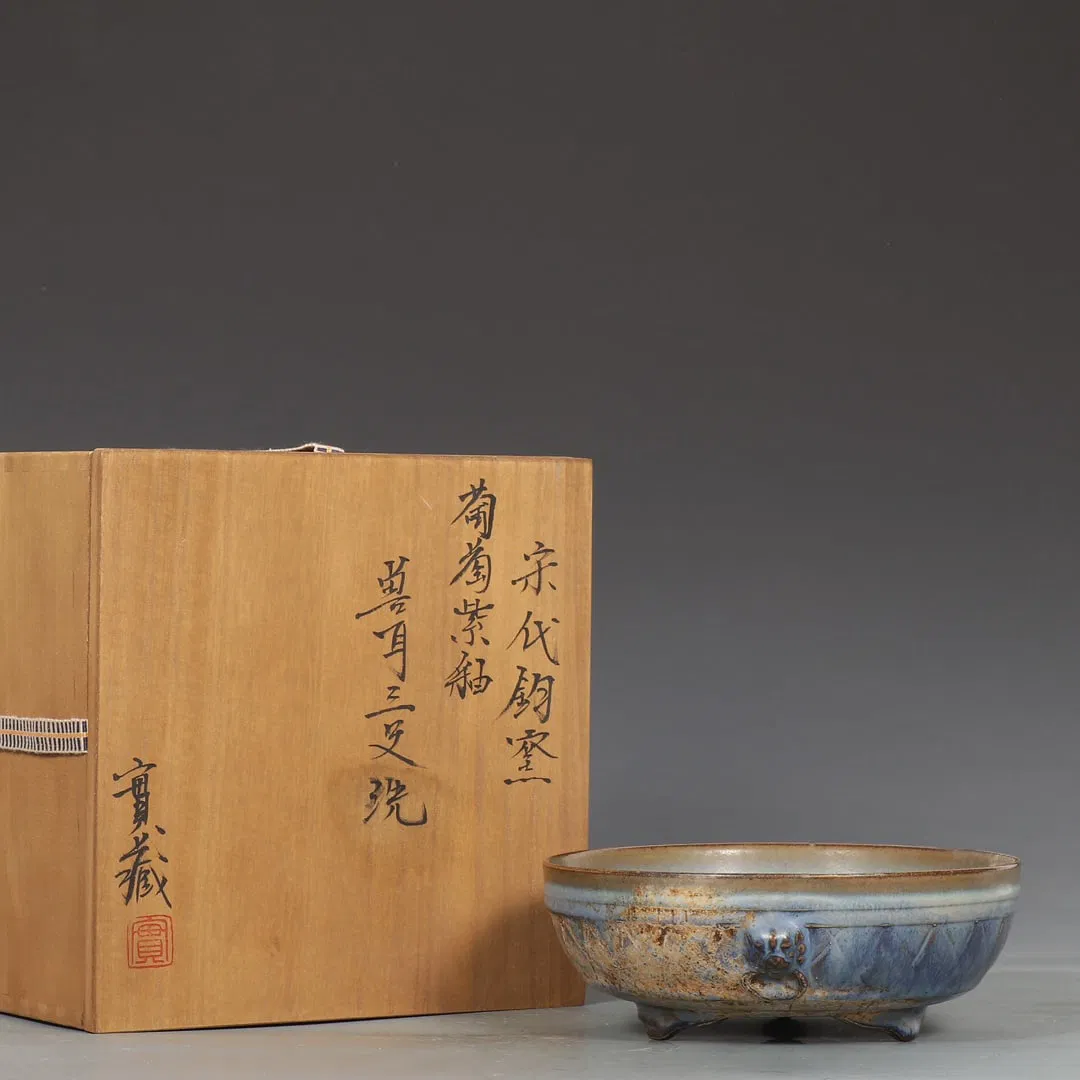 宋代鈞窯
葡萄紫釉
兽耳三足洗
實藏
實